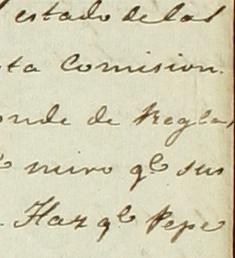 estado de las
ta Comision.
onde de Regla,
miro qe sus
Haz qe Pepe